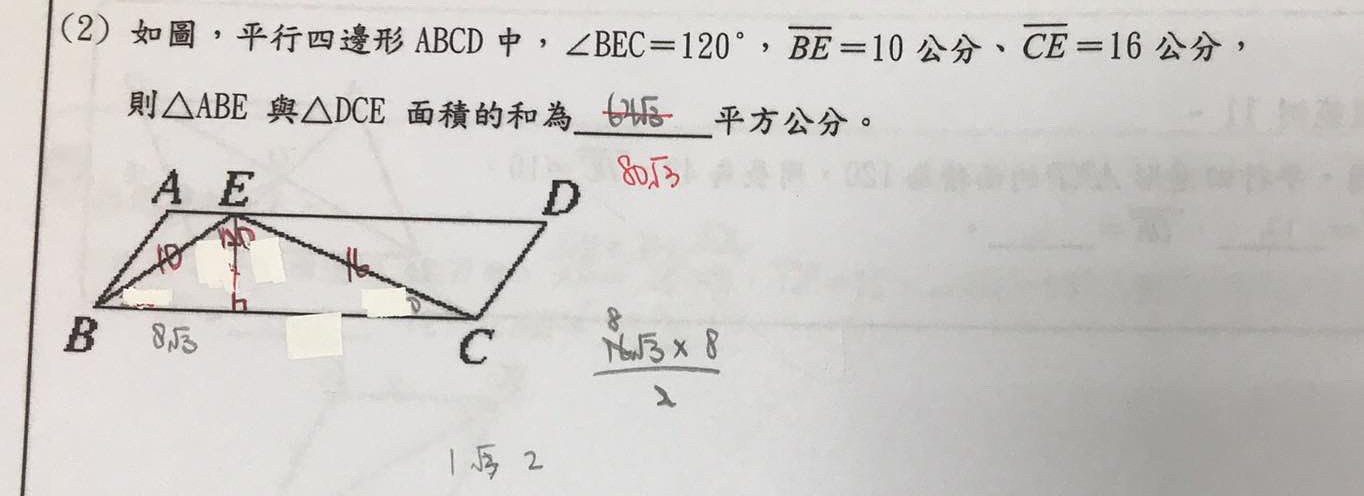 (2) 如圖，平行四邊形 ABCD 中，∠BEC＝120°，BE＝10 公分、CE＝16 公分，
則△ABE 與△DCE 面積的和為 64√3 平方公分。
80√3
A E D
120
10 16
B C
8√3
8
16√3 × 8
2
1 √3 2